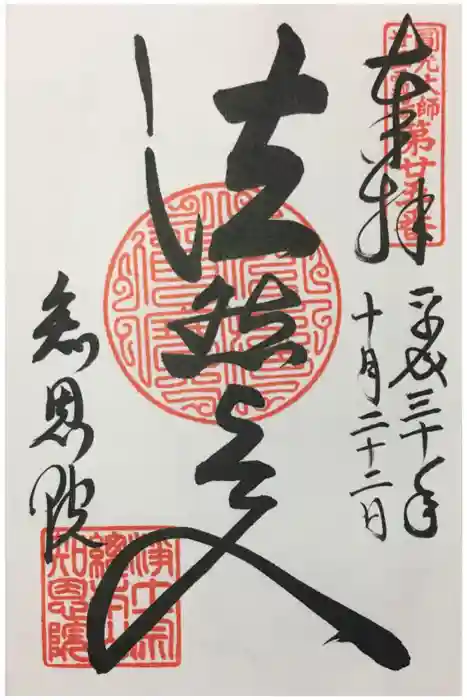 奉拝
圓光大師
第廿五番
平成三十年
十月二十二日
法然上人
知恩院
浄土宗
總本山
知恩院